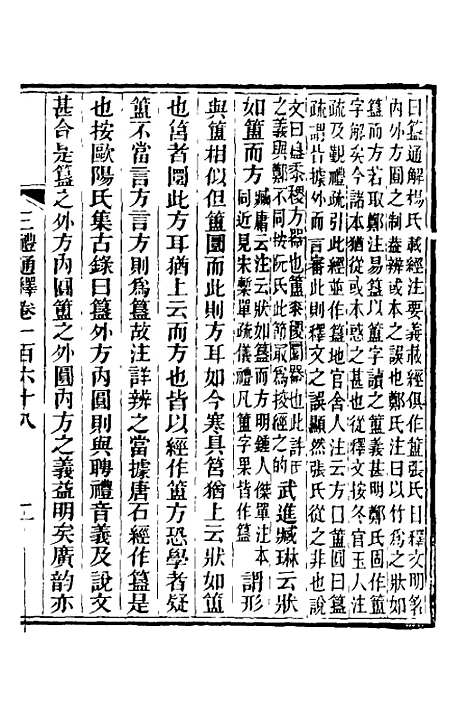 曰簋通解楊氏載經注要義載經俱作簠張氏曰釋文明茗
內外方圓之制葢辨或本之誤也鄭氏注曰以竹為之狀如
簋而方若取鄭注易簋以簠讀之簠義甚明鄭氏固作簠
字解矣今諸本猶從或本惑之甚也從釋文按冬官玉人注
疏及觀禮疏引此經並作簋地官舍人注云方曰簠圓曰簋
疏謂皆據外而言審此則釋文之誤顯然張氏從之非也說
文曰簋黍稷方器也簠黍稷圜器也此許
之義與鄭不同按阮氏此節取為按經之的 武進臧琳云狀
如簠而方 臧庸云注云狀如簋而方明鍾人傑單注本
同近見宋槧單疏儀禮凡簠字果皆作簋 謂形
與簠相似但簠圜而此則方耳如今寒具筥猶上云狀如簠
也筥者圜此方耳猶上云而方也皆以經作簠方恐學者疑
簠不當言方言方則為簋故注詳辨之當據唐石經作簋是
也按歐陽氏集古錄曰簋外方內圓則與聘禮音義及說文
甚合是簋之外方內圓簠之外圓內方之義益明矣廣韵亦
三禮通釋卷一百六十八
二